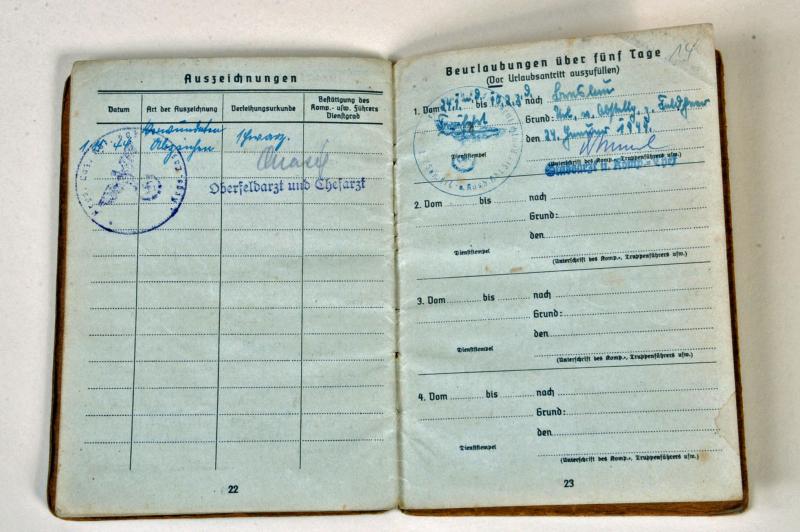 Auszeichnungen
Datum
Art der Auszeichnung
Verleihungsurkunde
Bestätigung des
Komp.- usw. Führers
Dienstgrad
Verwundeten
Abzeichen
schwarz.
Oberfeldarzt und Chefarzt
22
14
Beurlaubungen über fünf Tage
(Vor Urlaubsantritt auszufüllen)
1. Vom bis nach
Grund:
den 24. Januar
Dienststempel
(Unterschrift des Komp.-, Truppenführers usw.)
2. Vom bis nach
Grund:
den
Dienststempel
(Unterschrift des Komp.-, Truppenführers usw.)
3. Vom bis nach
Grund:
den
Dienststempel
(Unterschrift des Komp.-, Truppenführers usw.)
4. Vom bis nach
Grund:
den
Dienststempel
(Unterschrift des Komp.-, Truppenführers usw.)
23